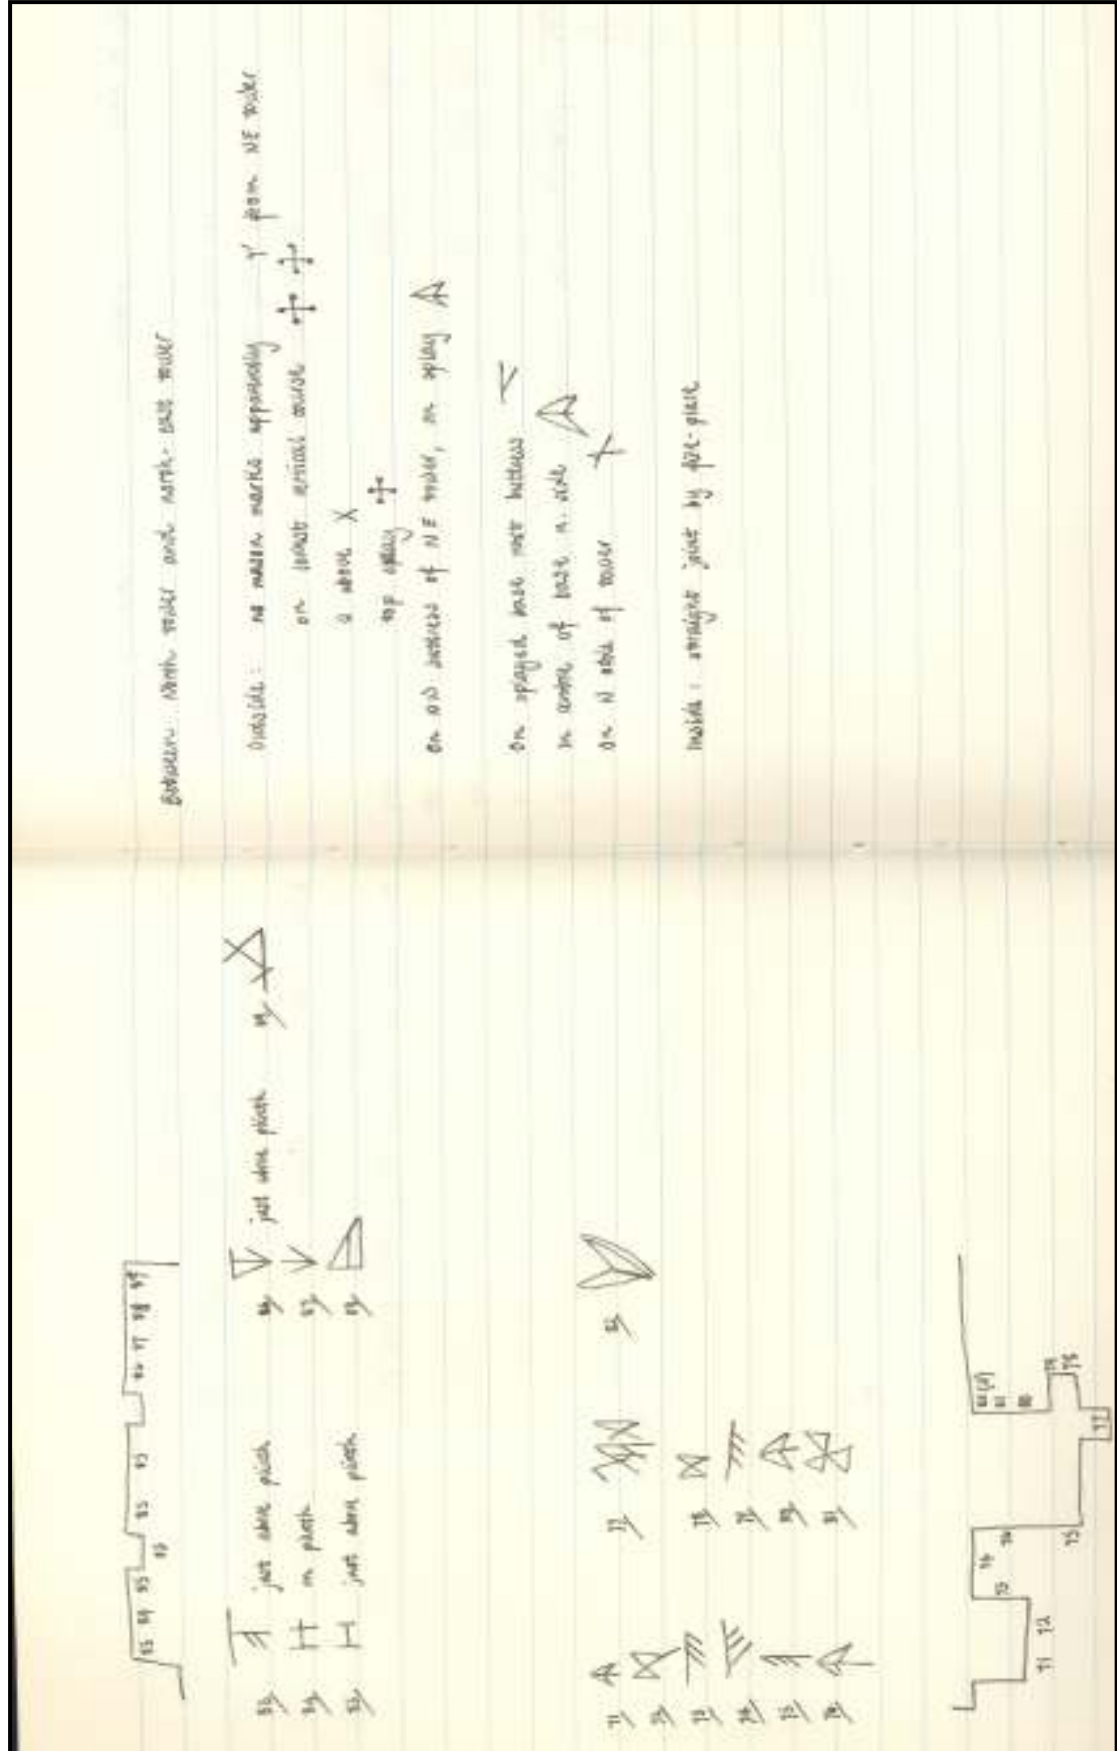 83 84 85 83 83 86 87 88 89
83/ just above plinth
84/ on plinth
85/ just above plinth
86/ just above plinth
87/
88/
89/
71/
72/
73/
74/
75/
76/
77/
78/
79/
80/
81/
82/
71 72
73
74
75
77
78
79
80
81
Between North tower and north-east tower
Outside: no mason marks apparently from NE tower
on lowest vertical course
above
top splay
On NW buttress of NE tower, on splay
On splayed base buttress
in centre of base n. side
On N side of tower
Inside: straight joint by fire-place